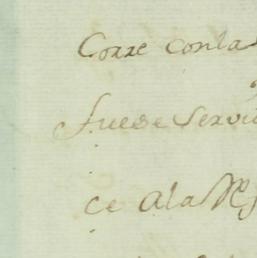 Corre conla
fuese servi
ce Ala